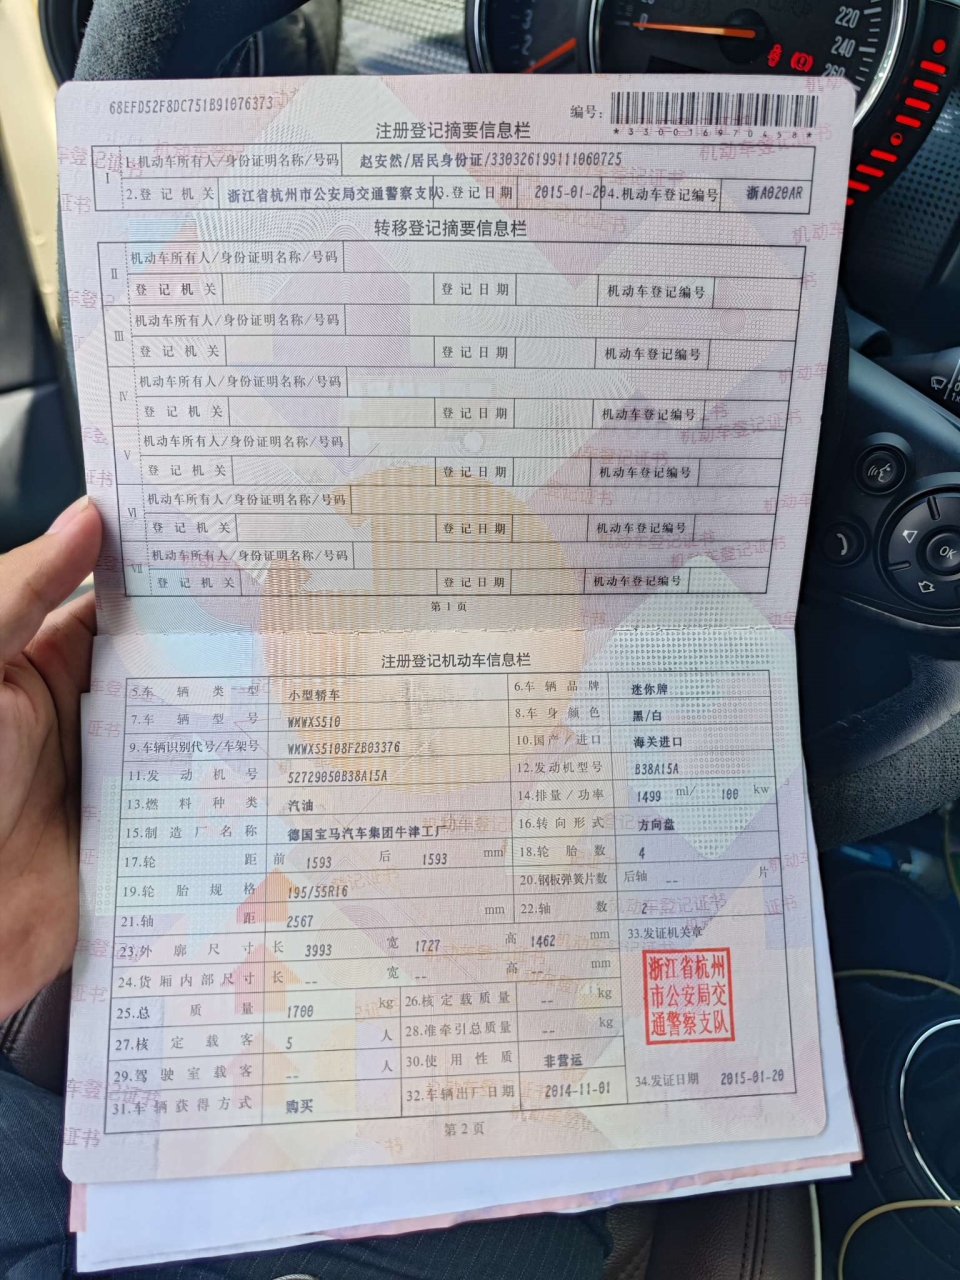 68EFD52F8DC751B91076373
编号:
*330016970458*
注册登记摘要信息栏
I 1.机动车所有人/身份证明名称/号码 赵安然/居民身份证/330326199111060725
2.登记机关 浙江省杭州市公安局交通警察支队 3.登记日期 2015-01-20 4.机动车登记编号 浙A020AR
转移登记摘要信息栏
II 机动车所有人/身份证明名称/号码
登记机关 登记日期 机动车登记编号
III 机动车所有人/身份证明名称/号码
登记机关 登记日期 机动车登记编号
IV 机动车所有人/身份证明名称/号码
登记机关 登记日期 机动车登记编号
V 机动车所有人/身份证明名称/号码
登记机关 登记日期 机动车登记编号
VI 机动车所有人/身份证明名称/号码
登记机关 登记日期 机动车登记编号
VII 机动车所有人/身份证明名称/号码
登记机关 登记日期 机动车登记编号
第1页
注册登记机动车信息栏
5.车辆类型 小型轿车 6.车辆品牌 迷你牌
7.车辆型号 WMWXS510 8.车身颜色 黑/白
9.车辆识别代号/车架号 WMWXS5108F2B03376 10.国产/进口 海关进口
11.发动机号 52729050B38A15A 12.发动机型号 B38A15A
13.燃料种类 汽油 14.排量/功率 1499 ml/ 100 kw
15.制造厂名称 德国宝马汽车集团牛津工厂 16.转向形式 方向盘
17.轮距 前 1593 后 1593 mm 18.轮胎数 4
19.轮胎规格 195/55R16 20.钢板弹簧片数 后轴 -- 片
21.轴距 2567 mm 22.轴数 2
23.外廓尺寸 长 3993 宽 1727 高 1462 mm 33.发证机关章
24.货厢内部尺寸 长 -- 宽 -- 高 -- mm
浙江省杭州
市公安局交
通警察支队
25.总质量 1700 kg 26.核定载质量 -- kg
27.核定载客 5 人 28.准牵引总质量 -- kg
29.驾驶室载客 -- 人 30.使用性质 非营运
31.车辆获得方式 购买 32.车辆出厂日期 2014-11-01 34.发证日期 2015-01-20
第2页
220
240
260
OK